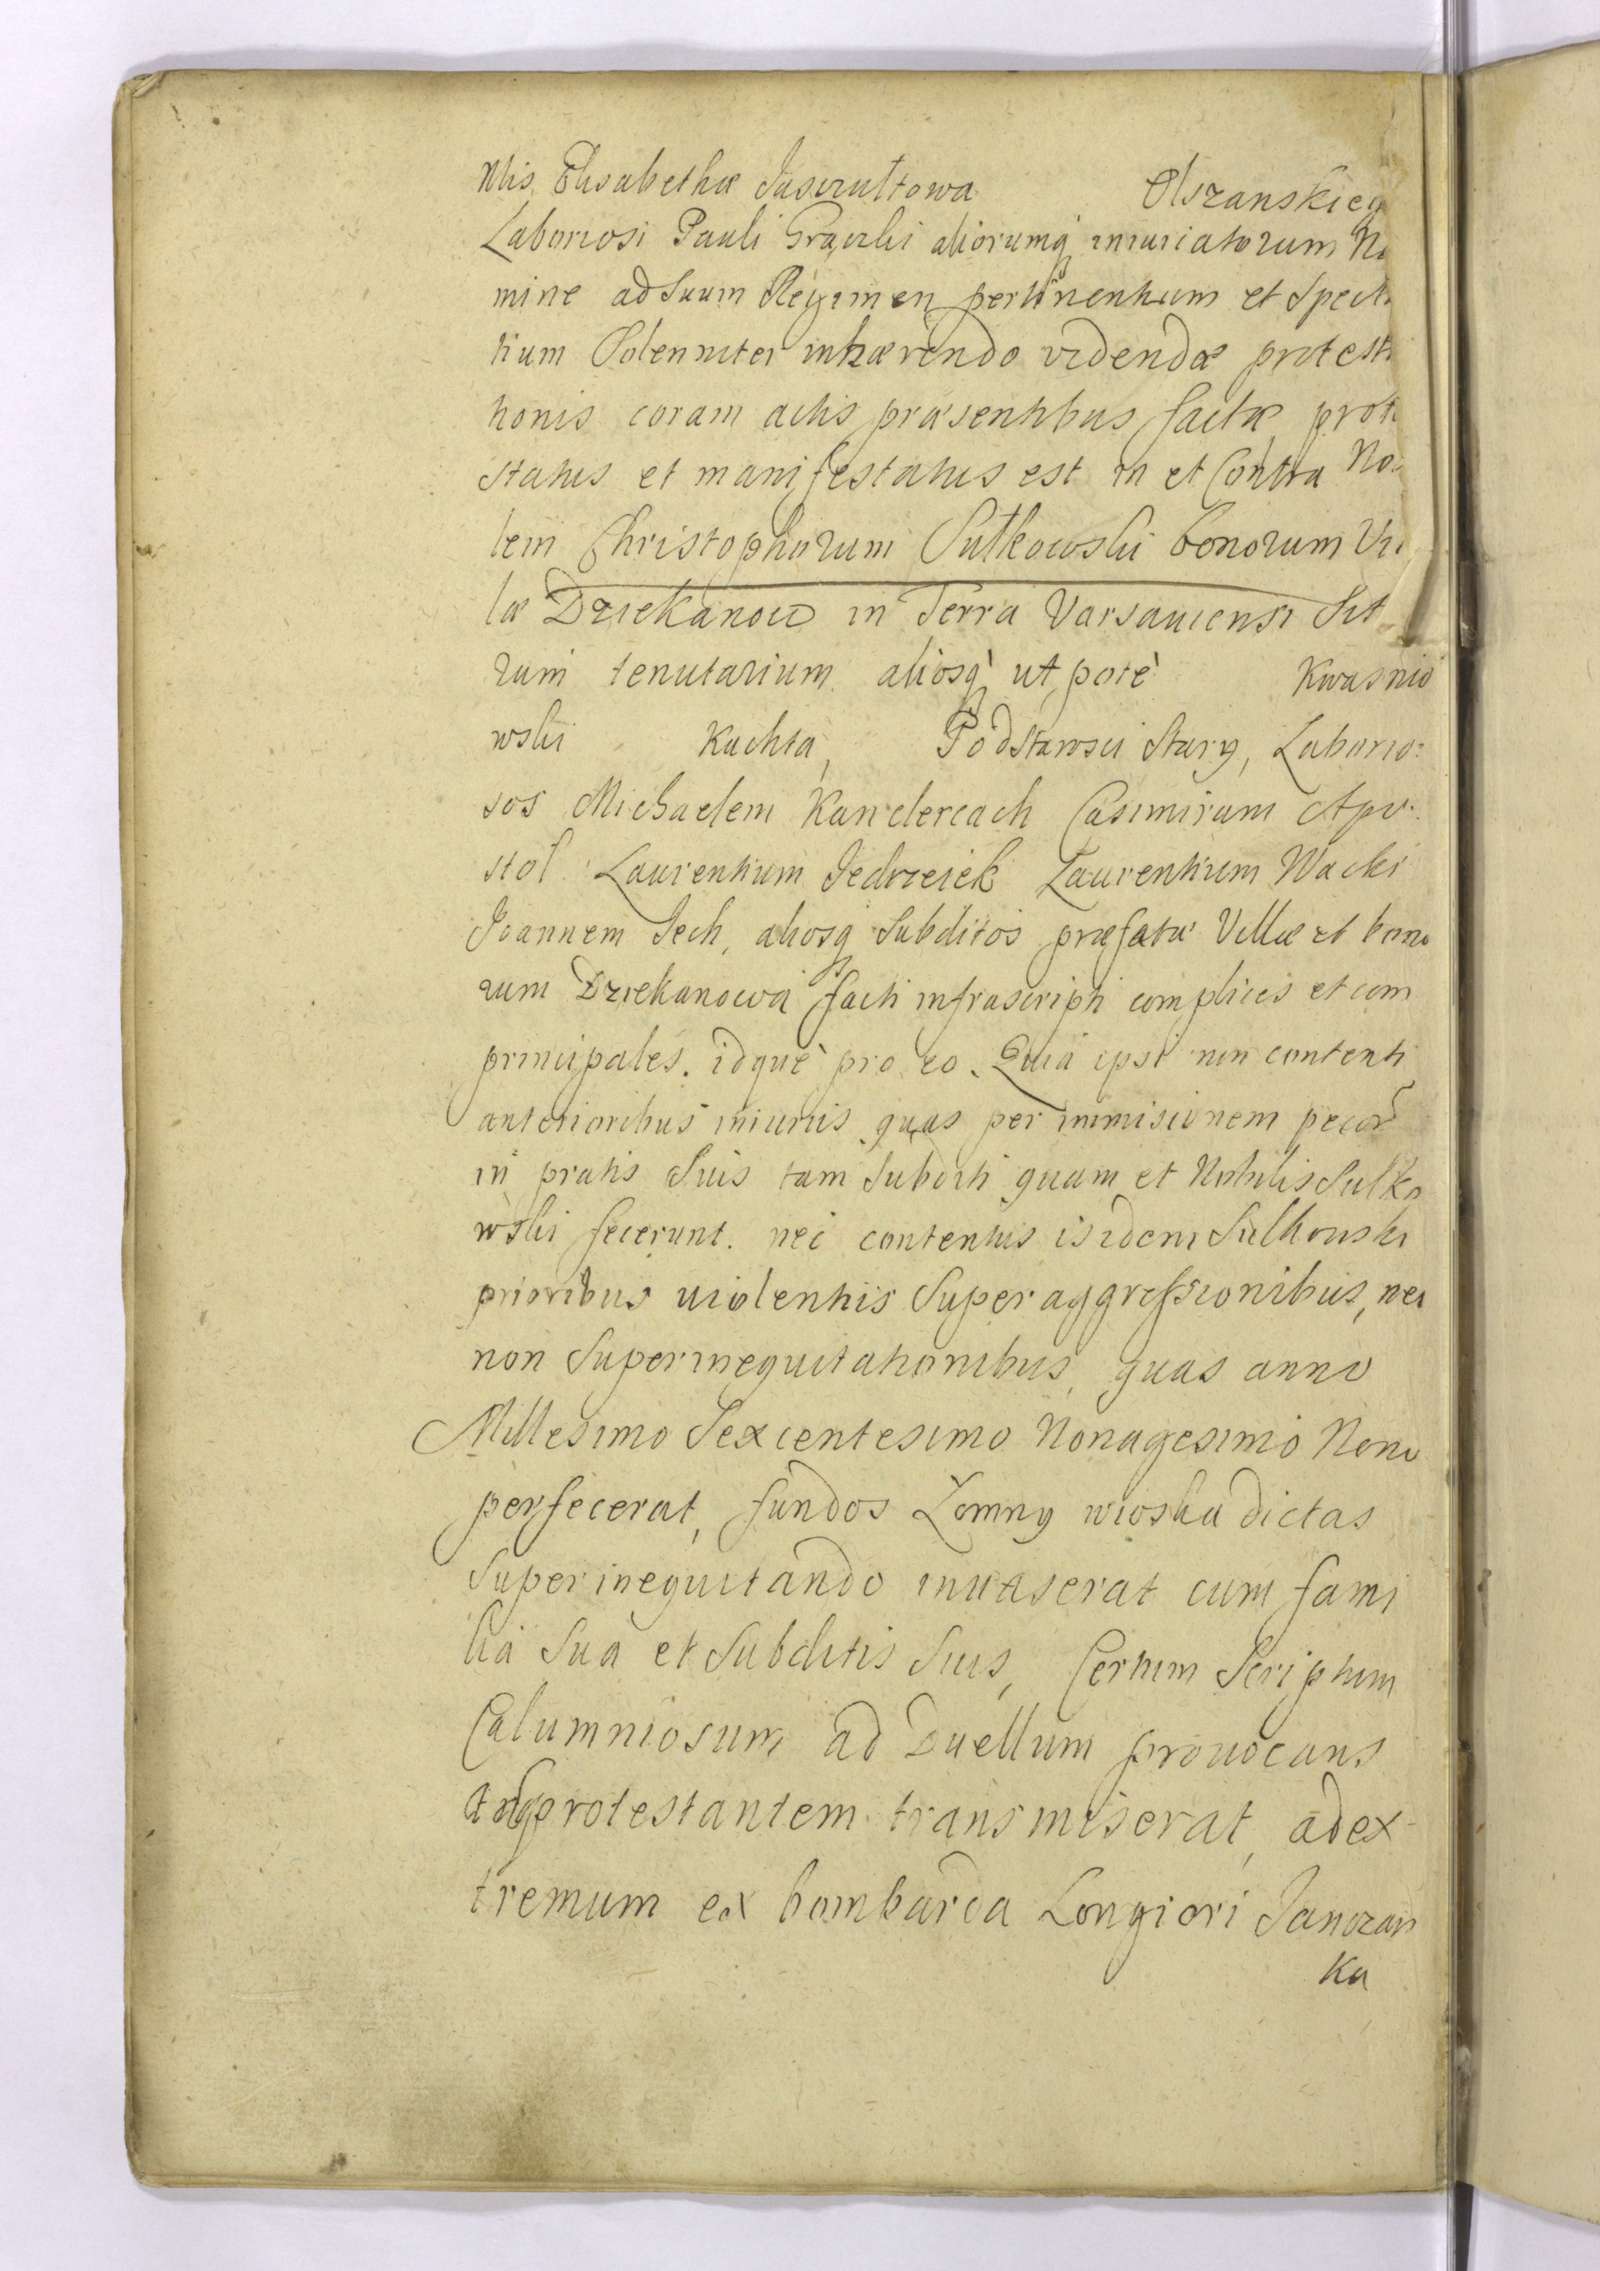 Nlis Elisabethæ Jaszczultowa Olszanskieg
Laboriosi Pauli aliorumq iniuriatorum No
mine ad Suum Regimen pertinentium et Specta
tium Solenniter inhærendo videndæ protesta
tionis coram actis præsentibus factæ, prote
status et manifestatus est in et Contra No
lem Christophorum Sulkowski bonorum Vil
læ Dziekanow in Terra Varsauiensi Sit
rum tenutarium aliosq ut pote Kwasnio
wski Kuchta, Podstarosci Stary, Laborio:
sos Michaelem Kanclerczach Casimirum Apo:
stol Laurentium Jedrzeiek Laurentium Wacki
Joannem Lech, aliosq Subditos præfatæ Villæ et bono
rum Dziekanowa facti infrascripti complices et com
principales. idquè pro eo. Quia ipsi non contenti
anterioribus iniuriis quas per immisionem pecor
in pratis Suis tam Subditi quam et Nobilis Sulko
wski fecerunt. nec contentus is idem Sulkowski
prioribus uiolentiis Superaggressionibus, nec
non Superinequitationibus, quas anno
Millesimo Sexcentesimo Nonagesimo Nono
perfecerat, fundos Lomny wioska dictas
Superinequitando inuaserat cum fami
lia Sua et Subditis Suis, Certum Scriptum
Calumniosum ad Duellum prouocans
protestantem transmiserat, ad ex
tremum ex bombarda Longiori Janczar
ka